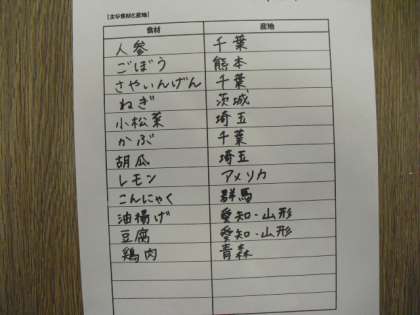 【主な食材と産地】
食材 産地
人参 千葉
ごぼう 熊本
さやいんげん 千葉
ねぎ 茨城
小松菜 埼玉
かぶ 千葉
胡瓜 埼玉
レモン アメリカ
こんにゃく 群馬
油揚げ 愛知・山形
豆腐 愛知・山形
鶏肉 青森